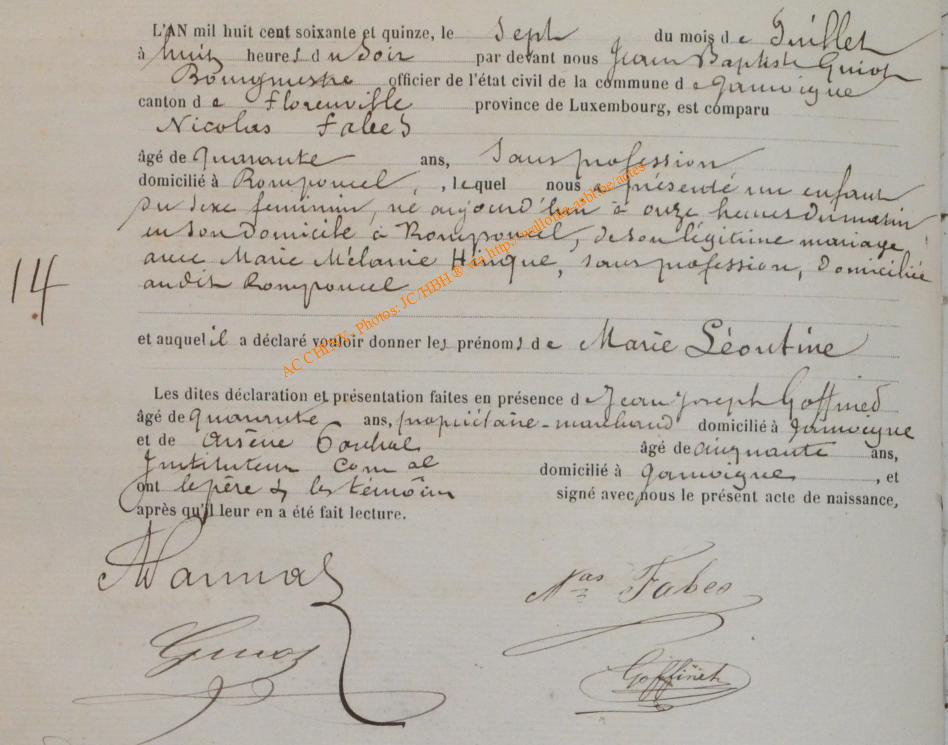 L'AN mil huit cent soixante et quinze, le Sept du mois de Juillet
à huit heures du Soir par devant nous Jean Baptiste Guiot
Bourgmestre officier de l'état civil de la commune de Jamoigne
canton de Florenville province de Luxembourg, est comparu
Nicolas Fabes
âgé de Quarante ans, Sans profession
domicilié à Romponcel, , lequel nous a présenté un enfant
du sexe feminin, né aujourd'hui à onze heures du matin
en son Domicile à Romponcel, de son légitime mariage,
avec Marie Mélanie Hinque, sans profession, Domiciliée
audit Romponcel
14
et auquel il a déclaré vouloir donner les prénoms de Marie Léontine
Les dites déclaration et présentation faites en présence de Jean Joseph Goffinet
âgé de quarante ans, propriétaire-marchand domicilié à Jamoigne
et de Arsène âgé de cinquante ans,
Instituteur Com al domicilié à Jamoigne , et
ont le père & les témoins signé avec nous le présent acte de naissance,
après qu'il leur en a été fait lecture.
Nas Fabes
Guiot
Goffinet
AC CHINY. Photos: JC/HBH ® via http://wallonia-asbl.be/actes